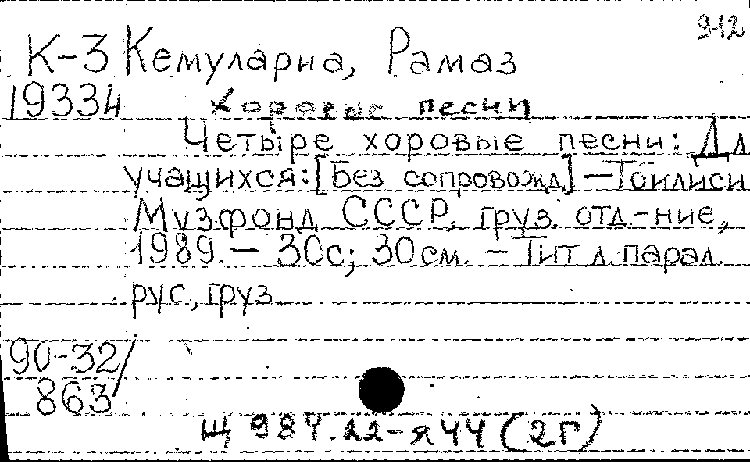 9-12
К-3 Кемулариа, Рамаз
19334 Хоровые песни
Четыре хоровые песни: Дл
учащихся: [Без сопровожд] — Тбилиси
Музфонд СССР, груз. отд-ние,
1989. — 30с; 30см. — Тит л парал
рус., груз
90-32/
863
Щ 984.22-я44 (2Г)